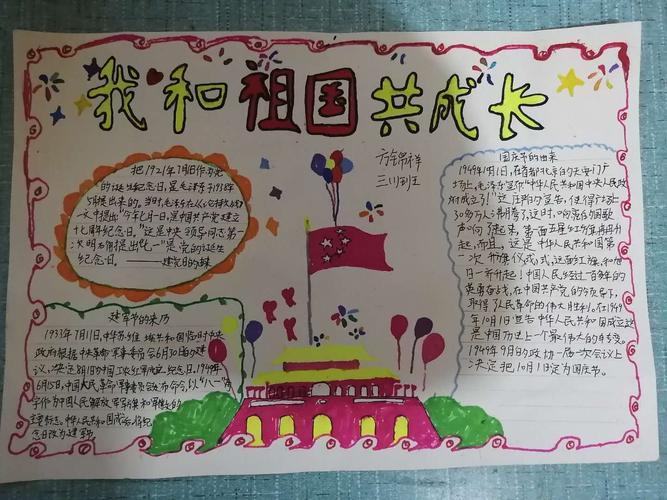 我和祖国共成长
三(1)班
把1921年7月1日作为党
的诞生纪念日,是毛泽东1938年
5月提出来的。当时,毛泽东在《论持久战》一
文中提出:"今年七月一日,是中国共产党建立
十七周年纪念日。"这是中央领导同志第一
次明确提出"七一"是党的诞生
纪念日。——建党日的由来
建军节的来历
1933年7月11日,中华苏维埃共和国临时中央
政府根据中央革命军事委员会6月30日的建
议,决定8月1日为中国工农红军成立纪念日。1949年
6月15日,中国人民革命军事委员会发布命令,以"八一"
字作为中国人民解放军军旗和军徽的
主要标志。中华人民共和国成立后,将纪
念日改为建军节
国庆节的由来
1949年10月1日,在首都北京的天安门广
场上,毛泽东宣布"中华人民共和国中央人民政
府成立了!"这庄严的宣告,使得广场上
30多万人沸腾了,这时,响亮的国歌
声响了起来,第一面五星红旗冉冉升
起,而且,这是中华人民共和国第
一次升旗仪式,这面红旗,和旭
日一并升起!中国人民经过一百多年的
英勇奋战,在中国共产党的领导下,
取得了人民革命的伟大胜利。在1949
年10月1日宣告中华人民共和国成立这
是中国历史上一个最伟大的转变。
1949年9月的政协一届一次会议上
决定把10月1日定为国庆节。